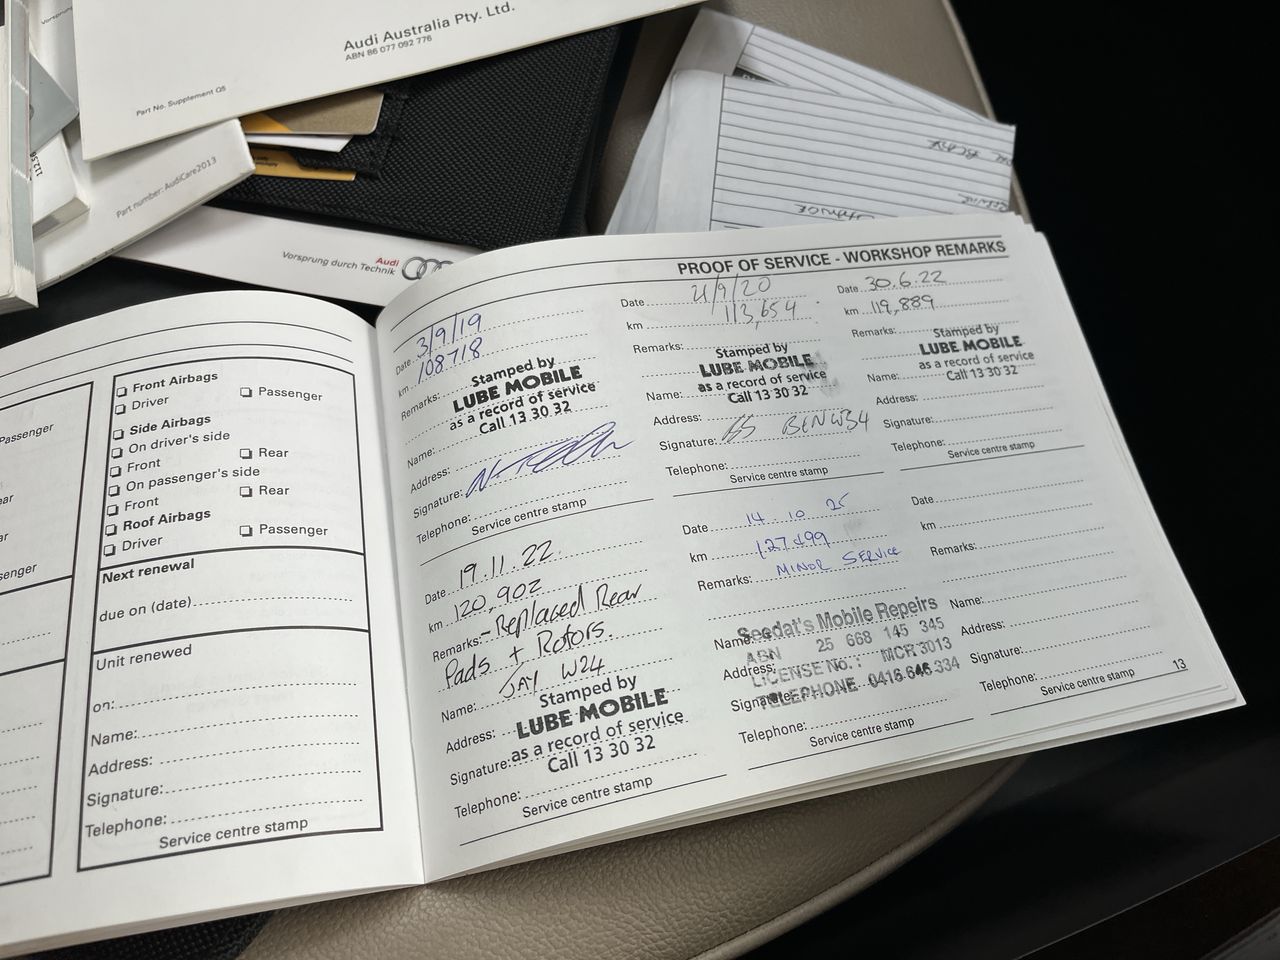 Audi Australia Pty. Ltd.
ABN 86 077 092 776
Part No. Supplement Q5
Part number: AudiCare2013
Vorsprung durch Technik
Audi
PROOF OF SERVICE - WORKSHOP REMARKS
Passenger
Front Airbags
Driver
Passenger
Side Airbags
On driver's side
Front
Rear
On passenger's side
Front
Rear
Roof Airbags
Driver
Passenger
Next renewal
due on (date)
Unit renewed
on:
Name:
Address:
Signature:
Telephone:
Service centre stamp
Date 3/9/19
km 108718
Remarks:
Stamped by
LUBE MOBILE
as a record of service
Call 13 30 32
Name:
Address:
Signature:
Telephone:
Service centre stamp
Date 21/9/20
km 113,654
Remarks:
Stamped by
LUBE MOBILE
as a record of service
Call 13 30 32
Name:
Address:
Signature: BEN W34
Telephone:
Service centre stamp
Date 30.6.22
km 119,889
Remarks:
Stamped by
LUBE MOBILE
as a record of service
Call 13 30 32
Name:
Address:
Signature:
Telephone:
Service centre stamp
Date 19.11.22.
km 120,902
Remarks: - Replaced Rear
Pads + Rotors.
JAY W24
Name:
Stamped by
LUBE MOBILE
as a record of service
Call 13 30 32
Address:
Signature:
Telephone:
Service centre stamp
Date 14 10 25
km 127499
Remarks: MINOR SERVICE
Name:
Seedat's Mobile Repeirs
ABN 25 668 145 345
Address:
LICENSE No.: MCR3013
Signature:
TELEPHONE 0416 646 334
Telephone:
Service centre stamp
Date
km
Remarks:
Name:
Address:
Signature:
Telephone:
Service centre stamp
13